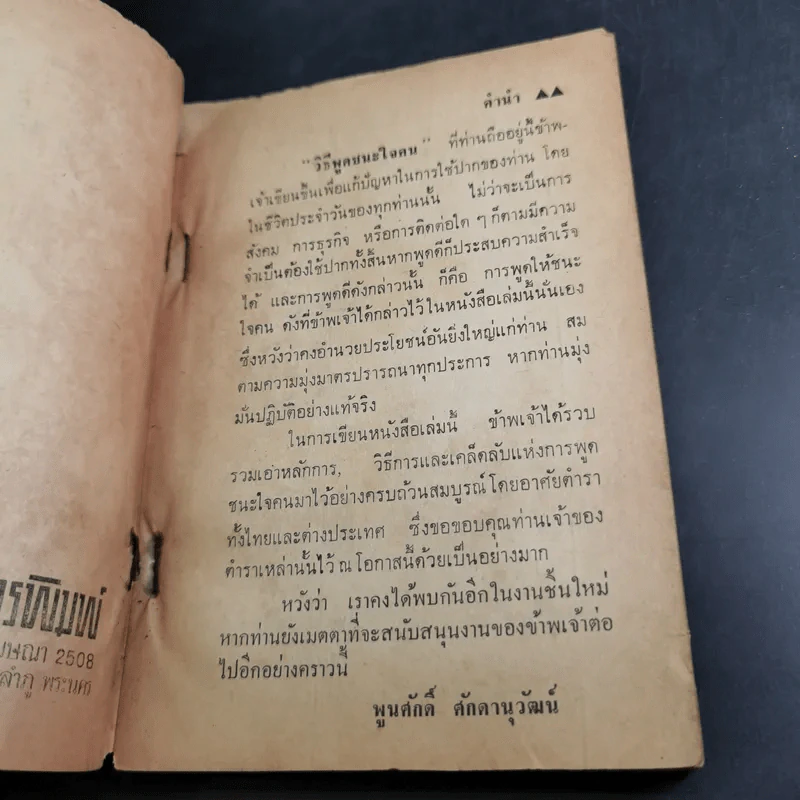 คำนำ ▲▲
"วิธีพูดชนะใจคน" ที่ท่านถืออยู่นี้ข้าพ-
เจ้าเขียนขึ้นเพื่อแก้ปัญหาในการใช้ปากของท่าน โดย
ในชีวิตประจำวันของทุกท่านนั้น ไม่ว่าจะเป็นการ
สังคม การธุรกิจ หรือการติดต่อใด ๆ ก็ตามมีความ
จำเป็นต้องใช้ปากทั้งสิ้นหากพูดดีก็ประสบความสำเร็จ
ได้ และการพูดดีดังกล่าวนั้น ก็คือ การพูดให้ชนะ
ใจคน ดังที่ข้าพเจ้าได้กล่าวไว้ในหนังสือเล่มนี้นั่นเอง
ซึ่งหวังว่าคงอำนวยประโยชน์อันยิ่งใหญ่แก่ท่าน สม
ตามความมุ่งมาตรปรารถนาทุกประการ หากท่านมุ่ง
มั่นปฏิบัติอย่างแท้จริง
ในการเขียนหนังสือเล่มนี้ ข้าพเจ้าได้รวบ
รวมเอาหลักการ, วิธีการและเคล็ดลับแห่งการพูด
ชนะใจคนมาไว้อย่างครบถ้วนสมบูรณ์ โดยอาศัยตำรา
ทั้งไทยและต่างประเทศ ซึ่งขอขอบคุณท่านเจ้าของ
ตำราเหล่านั้นไว้ ณ โอกาสนี้ด้วยเป็นอย่างมาก
หวังว่า เราคงได้พบกันอีกในงานชิ้นใหม่
หากท่านยังเมตตาที่จะสนับสนุนงานของข้าพเจ้าต่อ
ไปอีกอย่างคราวนี้
พูนศักดิ์ ศักดานุวัฒน์
ารพิมพ์
ษณา 2508
ลำภู พระนคร